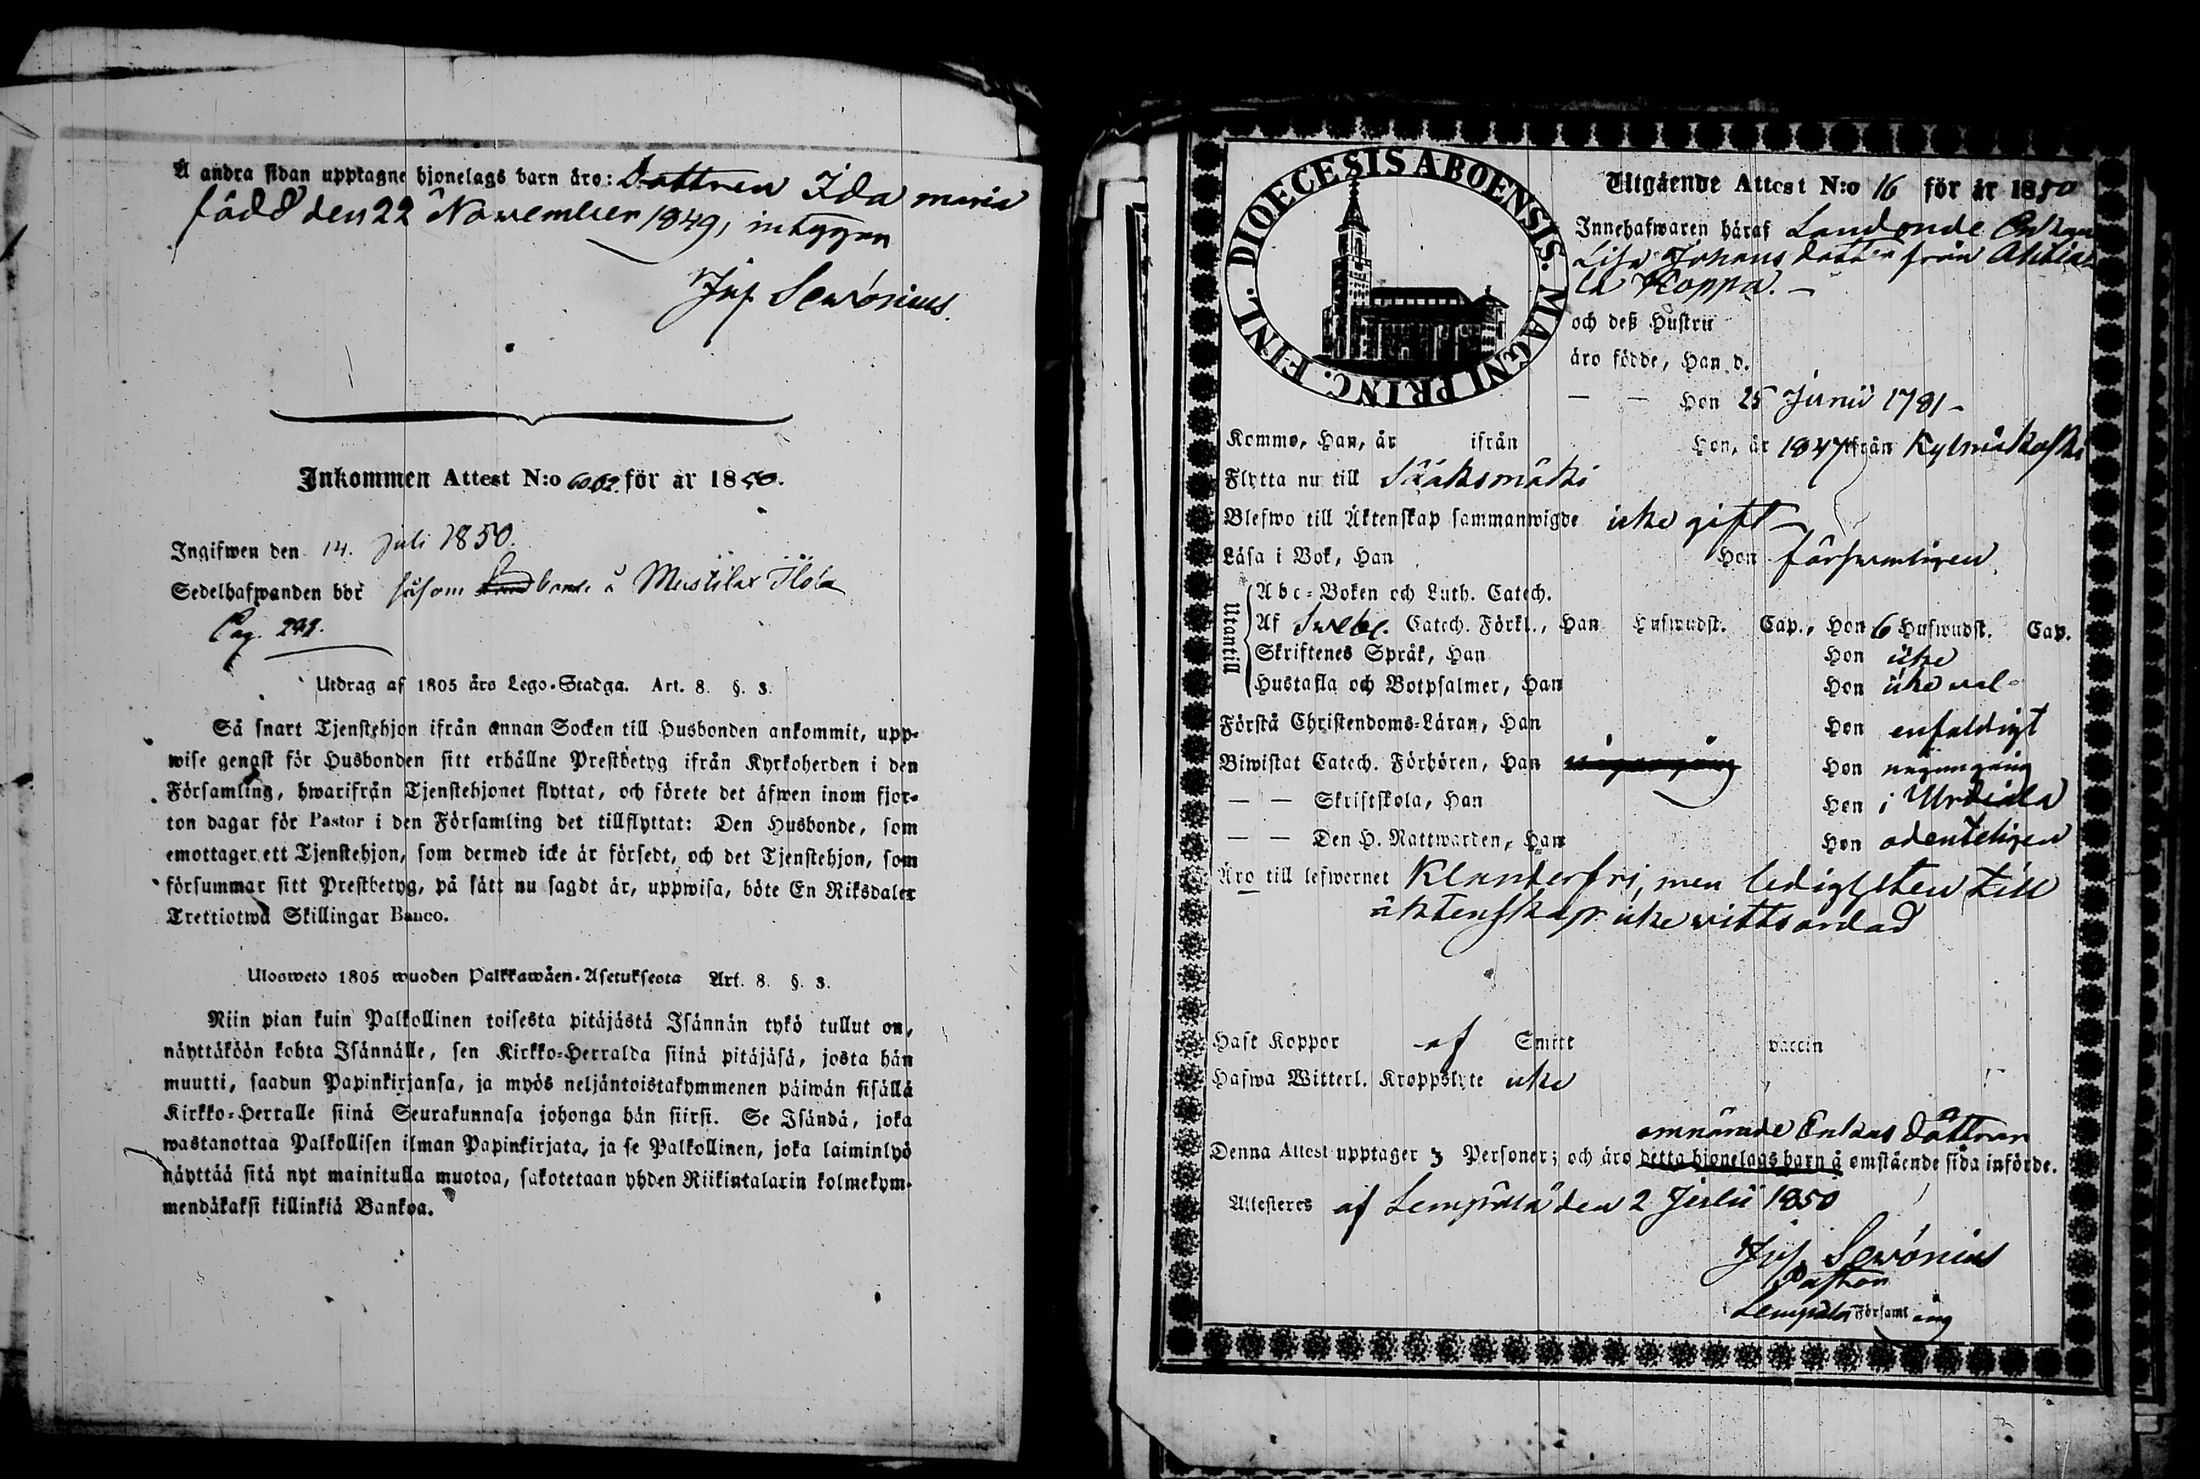 Å andra sidan upptagne hjonelags barn äro: Dottren Ida maria
född den 22 November 1849, intygar
Jos. Sevónius.
Inkommen Attest N:o för år 1850.
Ingifwen den 14. Juli 1850.
Sedelhafwanden bör såsom å Mustila
Pag. 291.
Utdrag af 1805 års Lego-Stadga. Art. 8. §. 3.
Så snart Tjenstehjon ifrån annan Socken till Husbonden ankommit, upp-
wise genast för Husbonden sitt erhållne Prestbetyg ifrån Kyrkoherden i den
Församling, hwarifrån Tjenstehjonet flyttat, och förete det äfwen inom fjor-
ton dagar för Pastor i den Församling det tillflyttat: Den Husbonde, som
emottager ett Tjenstehjon, som dermed icke är försedt, och det Tjenstehjon, som
försummar sitt Prestbetyg, på sätt nu sagdt är, uppwisa, böte En Riksdaler
Trettiotwå Skillingar Banco.
Ulosweto 1805 wuoden Palkkawäen-Asetuksesta Art. 8. §. 3.
Niin pian kuin Palkollinen toisesta pitäjästä Isännän tykö tullut on,
näyttäköön kohta Isännälle, sen Kirkko-Herralda siinä pitäjäsä, josta hän
muutti, saadun Papinkirjansa, ja myös neljäntoistakymmenen päiwän sisällä
Kirkko-Herralle siinä Seurakunnasa johonga hän siirsi. Se Isändä, joka
wastanottaa Palkollisen ilman Papinkirjata, ja se Palkollinen, joka laiminlyö
näyttää sitä nyt mainitulla muotoa, sakotetaan yhden Riikintalarin kolmekym-
mendäkaksi killinkiä Bankoa.
DIOECESIS ABOENSIS. MAGNI PRINC. FINL.
Utgående Attest N:o 16 för år 1850
Innehafwaren häraf Enkan
Lisa Johans dotter från Ahtia-
la Hoppa. –
och deß Hustru
äro födde, Han d.
— — Hon 25 Junii 1781 –
Kommo, Han, år ifrån Hon, år 1847 ifrån Kylmäkoski
Flytta nu till Sääksmäki
Blefwo till Äktenskap sammanwigde icke gift –
Läsa i Bok, Han Hon försvarligen
Utantill
Abc-Boken och Luth. Catech.
Af Sveb. Catech. Förkl., Han Hufwudst. Cap., Hon 6 Hufwudst. Cap.
Skriftenes Språk, Han Hon icke
Hustafla och Botpsalmer, Han Hon icke väl
Förstå Christendoms-Läran, Han Hon enfaldigt
Biwistat Catech. Förhören, Han någongång Hon någongång
— — Skriftskola, Han Hon i Urdiala
— — Den H. Nattwarden, Han Hon ordenteligen
Äro till lefwernet Klanderfri, men ledigheten till
äktenskap icke vittsordad
Haft Koppor af Smitt vaccin
Hafwa Witterl. Kroppslyte icke
omnämde Enkas döttrar
Denna Attest upptager 3 Personer; och äro detta hjonelags barn å omstående sida införde.
Attesteres af Lempälä den 2 Julii 1850
Jos. Sevónius
Pastor
i Lempälä Församling